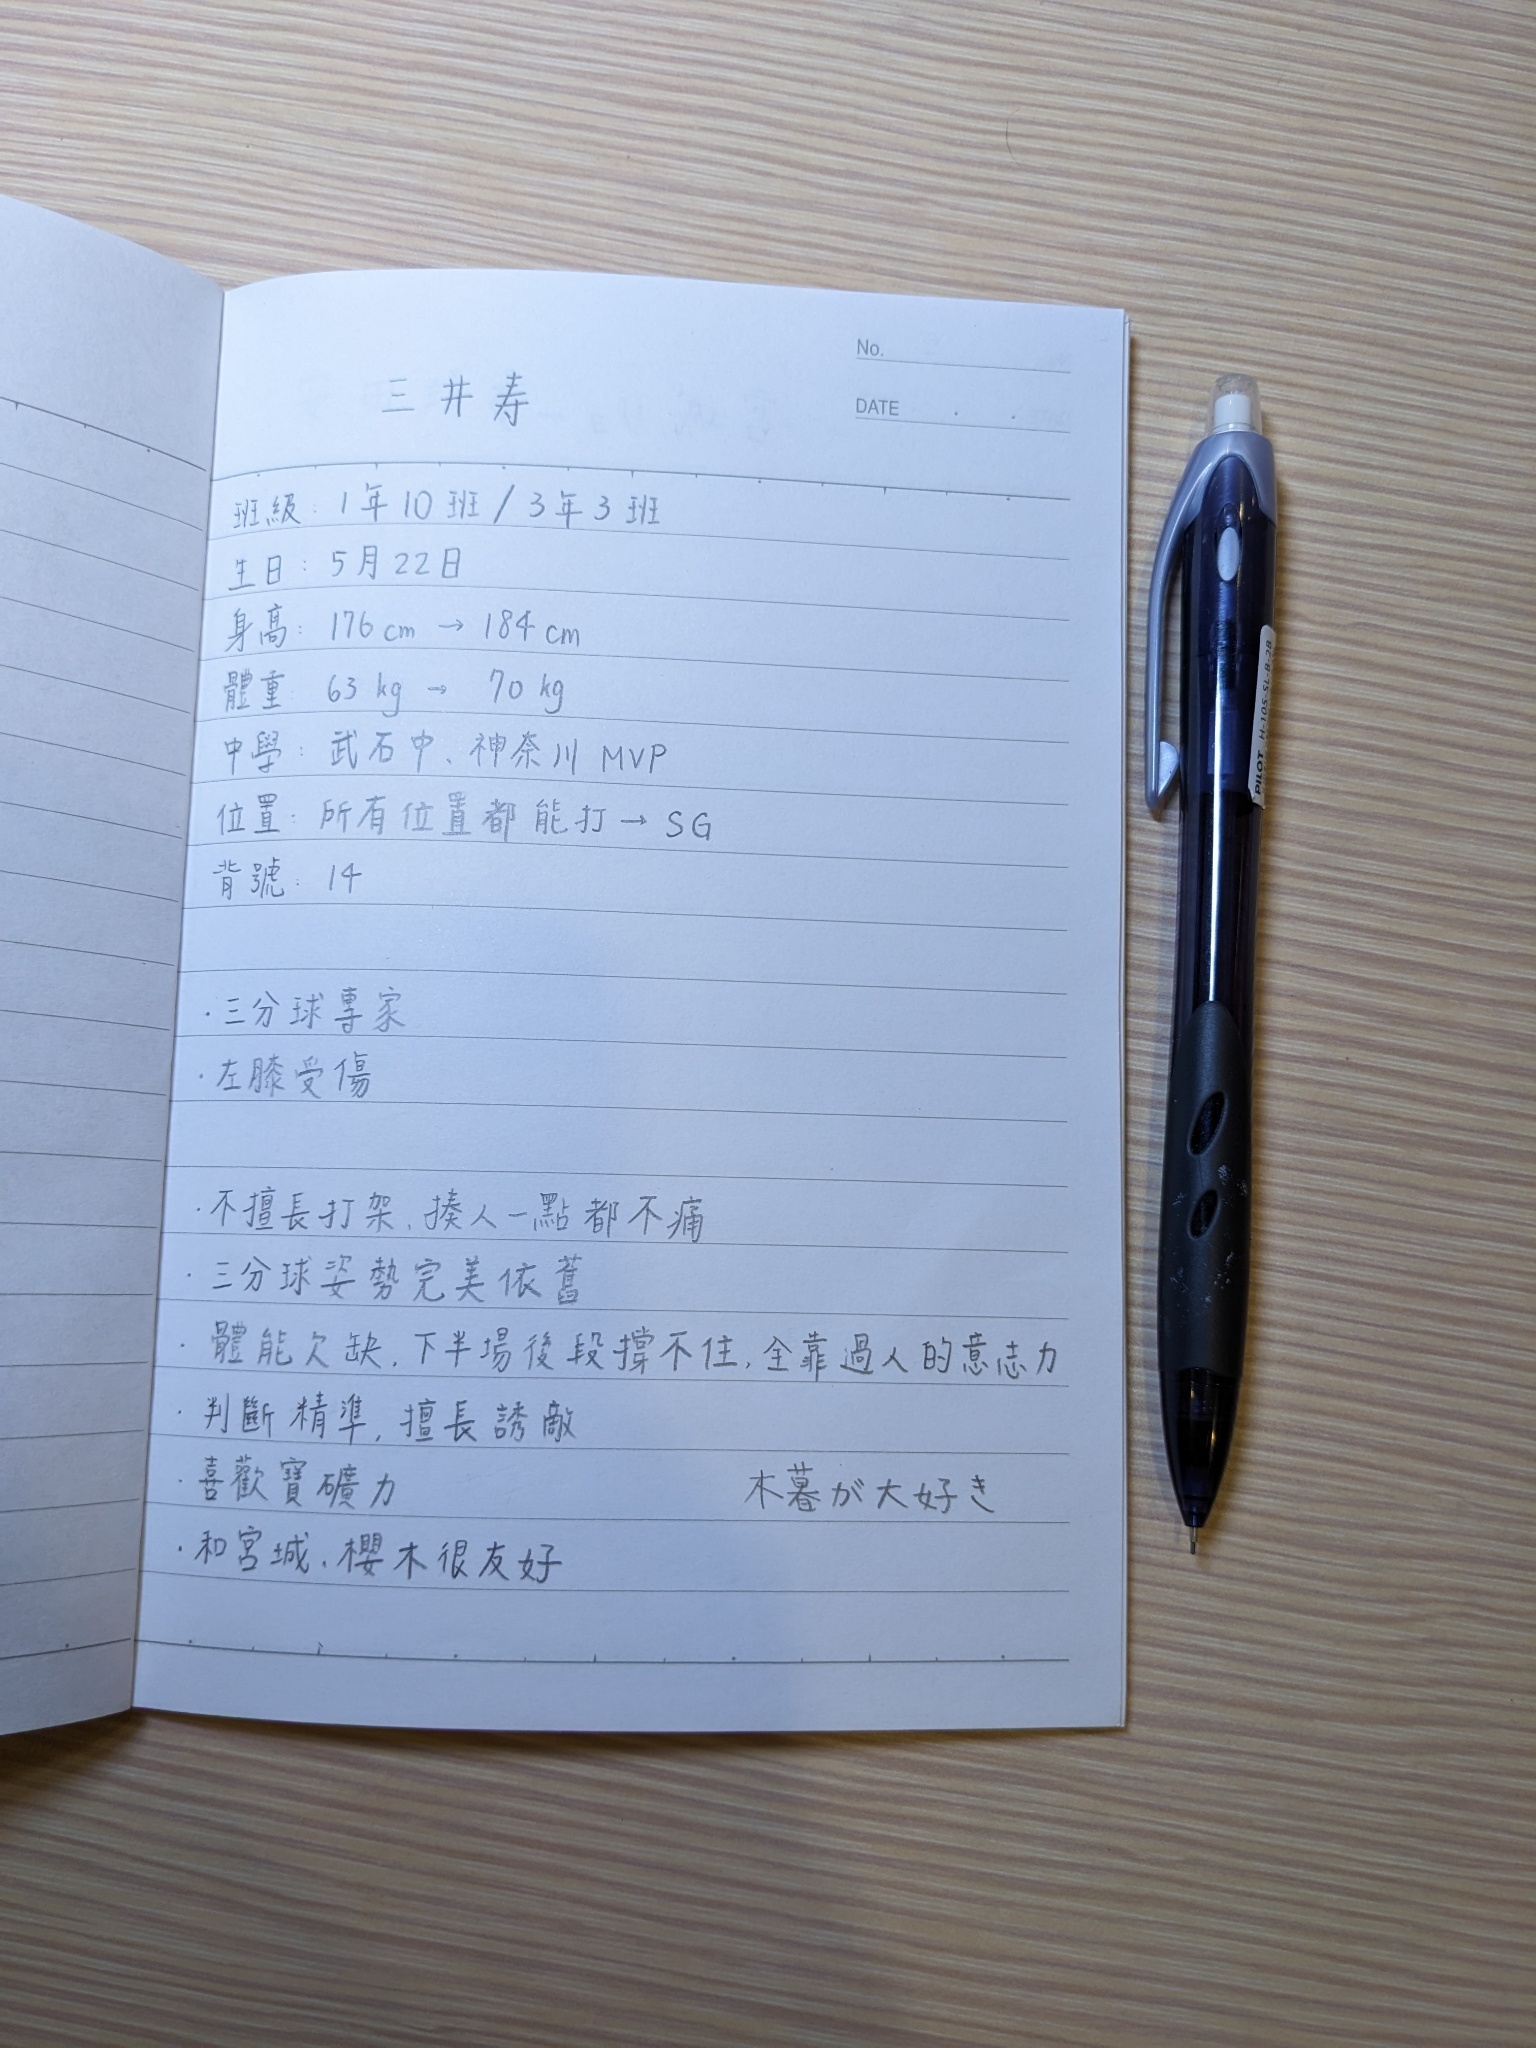 No.
DATE . .
三井寿
班級：1年10班/3年3班
生日：5月22日
身高：176cm → 184cm
體重：63kg → 70kg
中學：武石中、神奈川MVP
位置：所有位置都能打→SG
背號：14
・三分球專家
・左膝受傷
・不擅長打架、揍人一點都不痛
・三分球姿勢完美依舊
・體能欠缺，下半場後段撐不住，全靠過人的意志力
・判斷精準，擅長誘敵
・喜歡寶礦力 木暮が大好き
・和宮城、櫻木很友好
PILOT H-105-SL-B-2B